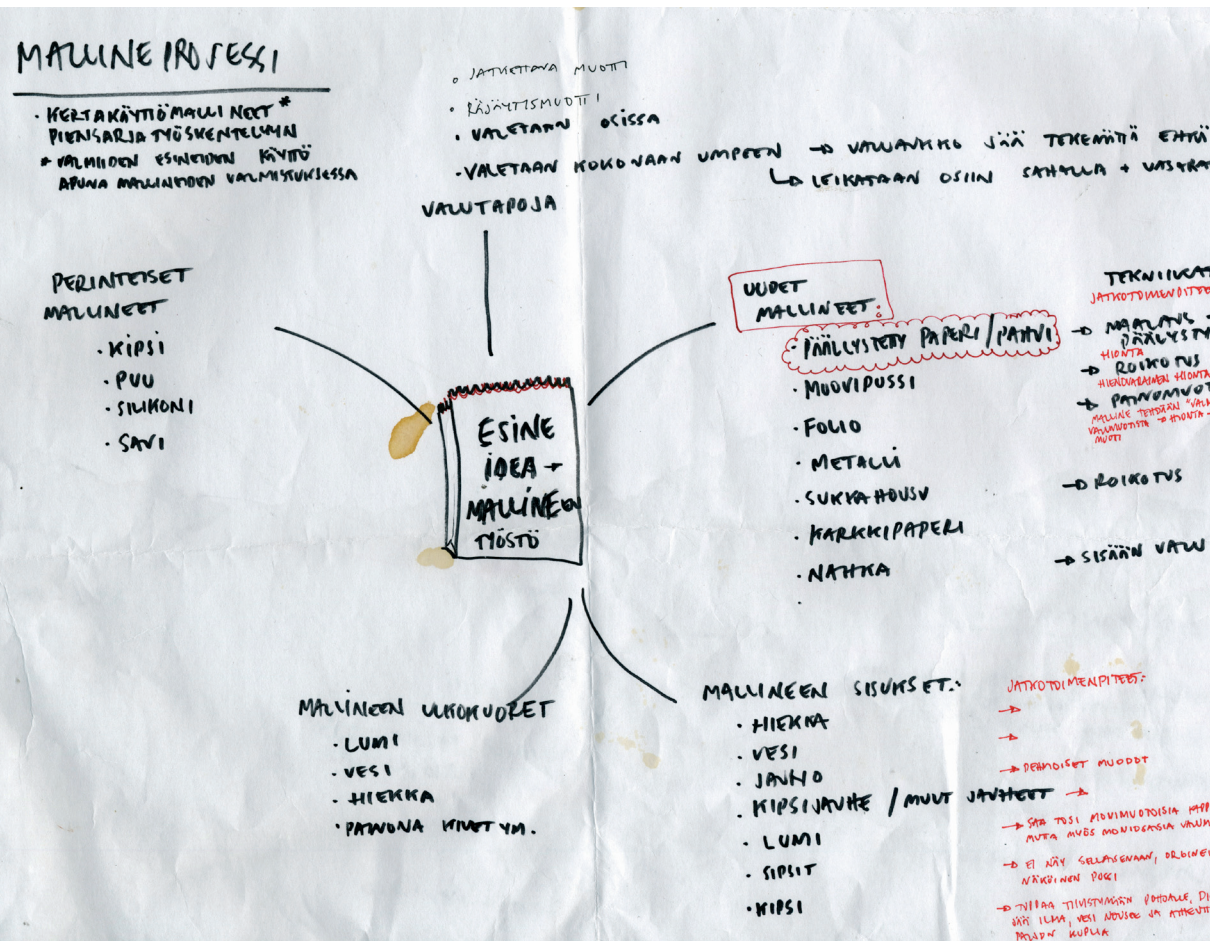 MALLINEPROSESSI
· KERTAKÄYTTÖMALLINEET *
PIENSARJATYÖSKENTELYYN
* VALMIIDEN ESINEIDEN KÄYTTÖ
APUNA MALLINEIDEN VALMISTUKSESSA
· JATKETTAVA MUOTTI
· RÄJÄYTISMUOTTI
· VALETAAN OSISSA
· VALETAAN KOKONAAN UMPEEN → VALUAUKKO JÄÄ TEKEMÄTTÄ EHKÄ
↳ LEIKATAAN OSIIN SAHALLA + VASARA
VALUTAPOJA
PERINTEISET
MALLINEET
· KIPSI
· PUU
· SILIKONI
· SAVI
ESINE
IDEA →
MALLINEEN
TYÖSTÖ
UUDET
MALLINEET:
· PÄÄLLYSTETTY PAPERI/PAHVI
· MUOVIPUSSI
· FOLIO
· METALLI
· SUKKAHOUSU
· KARKKIPAPERI
· NAHKA
·
TEKNIIKAT
JATKOTOIMENPITEE
→ MAALAUS +
PÄÄLYSTY
HIONTA
→ ROIKOTUS
HIENOVARAINEN HIONTA
→ PAINOMUOT
MALLINE TEHDÄÄN "VAL
VALUMUOTISTA → HIONTA →
MUOTTI
→ ROIKOTUS
→ SISÄÄN VALU
MALLINEEN ULKOKUORET
· LUMI
· VESI
· HIEKKA
· PAINONA KIVET YM.
MALLINEEN SISUKSET:
· HIEKKA
· VESI
· JAUHO
· KIPSIJAUHE / MUUT JAUHEET →
· LUMI
· SIPSIT
· KIPSI
JATKOTOIMENPITEET:
→
→
→ PEHMOISET MUODOT
→ SAA TOSI MONIMUOTOISIA KAPP
MUTTA MYÖS MONIOSAISIA VALUM
→ EI NÄY SELLAISENAAN,
NÄKÖINEN PUSSI
→ TIIVISTYMÄÄN POHJALLE,
JÄÄ ILMA, VESI NOUSEE JA
PALJON KUPLIA